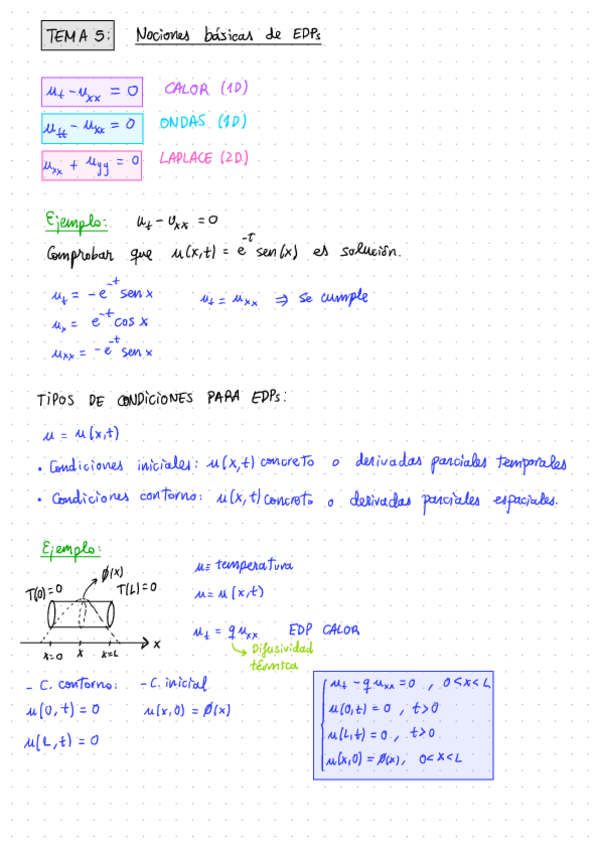 TEMA 5: Nociones básicas de EDPs
u_t - u_xx = 0 CALOR (1D)
u_tt - u_xx = 0 ONDAS (1D)
u_xx + u_yy = 0 LAPLACE (2D)
Ejemplo: u_t - u_xx = 0
Comprobar que u(x,t) = e^-t sen(x) es solución.
u_t = -e^-t sen x u_t = u_xx ⇒ se cumple
u_x = e^-t cos x
u_xx = -e^-t sen x
TIPOS DE CONDICIONES PARA EDPs:
u = u(x,t)
• Condiciones iniciales: u(x,t) concreto o derivadas parciales temporales
• Condiciones contorno: u(x,t) concreto o derivadas parciales espaciales.
Ejemplo:
T(0)=0 ϕ(x) T(L)=0
x=0 x x=L x
u ≡ temperatura
u = u(x,t)
u_t = q u_xx EDP CALOR
Difusividad
térmica
- C. contorno: - C. inicial
u(0,t) = 0 u(x,0) = ϕ(x)
u(L,t) = 0
u_t - q u_xx = 0 , 0<x<L
u(0,t) = 0 , t>0
u(L,t) = 0 , t>0
u(x,0) = ϕ(x), 0<x<L